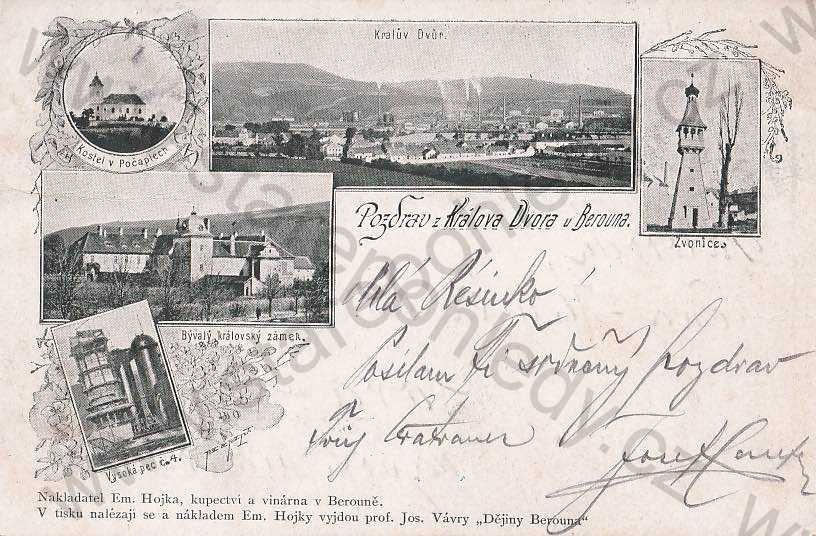 Králův Dvůr.
Kostel v Počaplech
Pozdrav z Králova Dvora u Berouna.
Zvonice.
Bývalý královský zámek.
Vysoká pec č. 4.
Milá Résinko!
Posílam Ti srdečný pozdrav
Tvůj
Josef
Nakladatel Em. Hojka, kupectví a vinárna v Berouně.
V tisku nalézají se a nákladem Em. Hojky vyjdou prof. Jos. Vávry „Dějiny Berouna"
www.starepohledy.cz